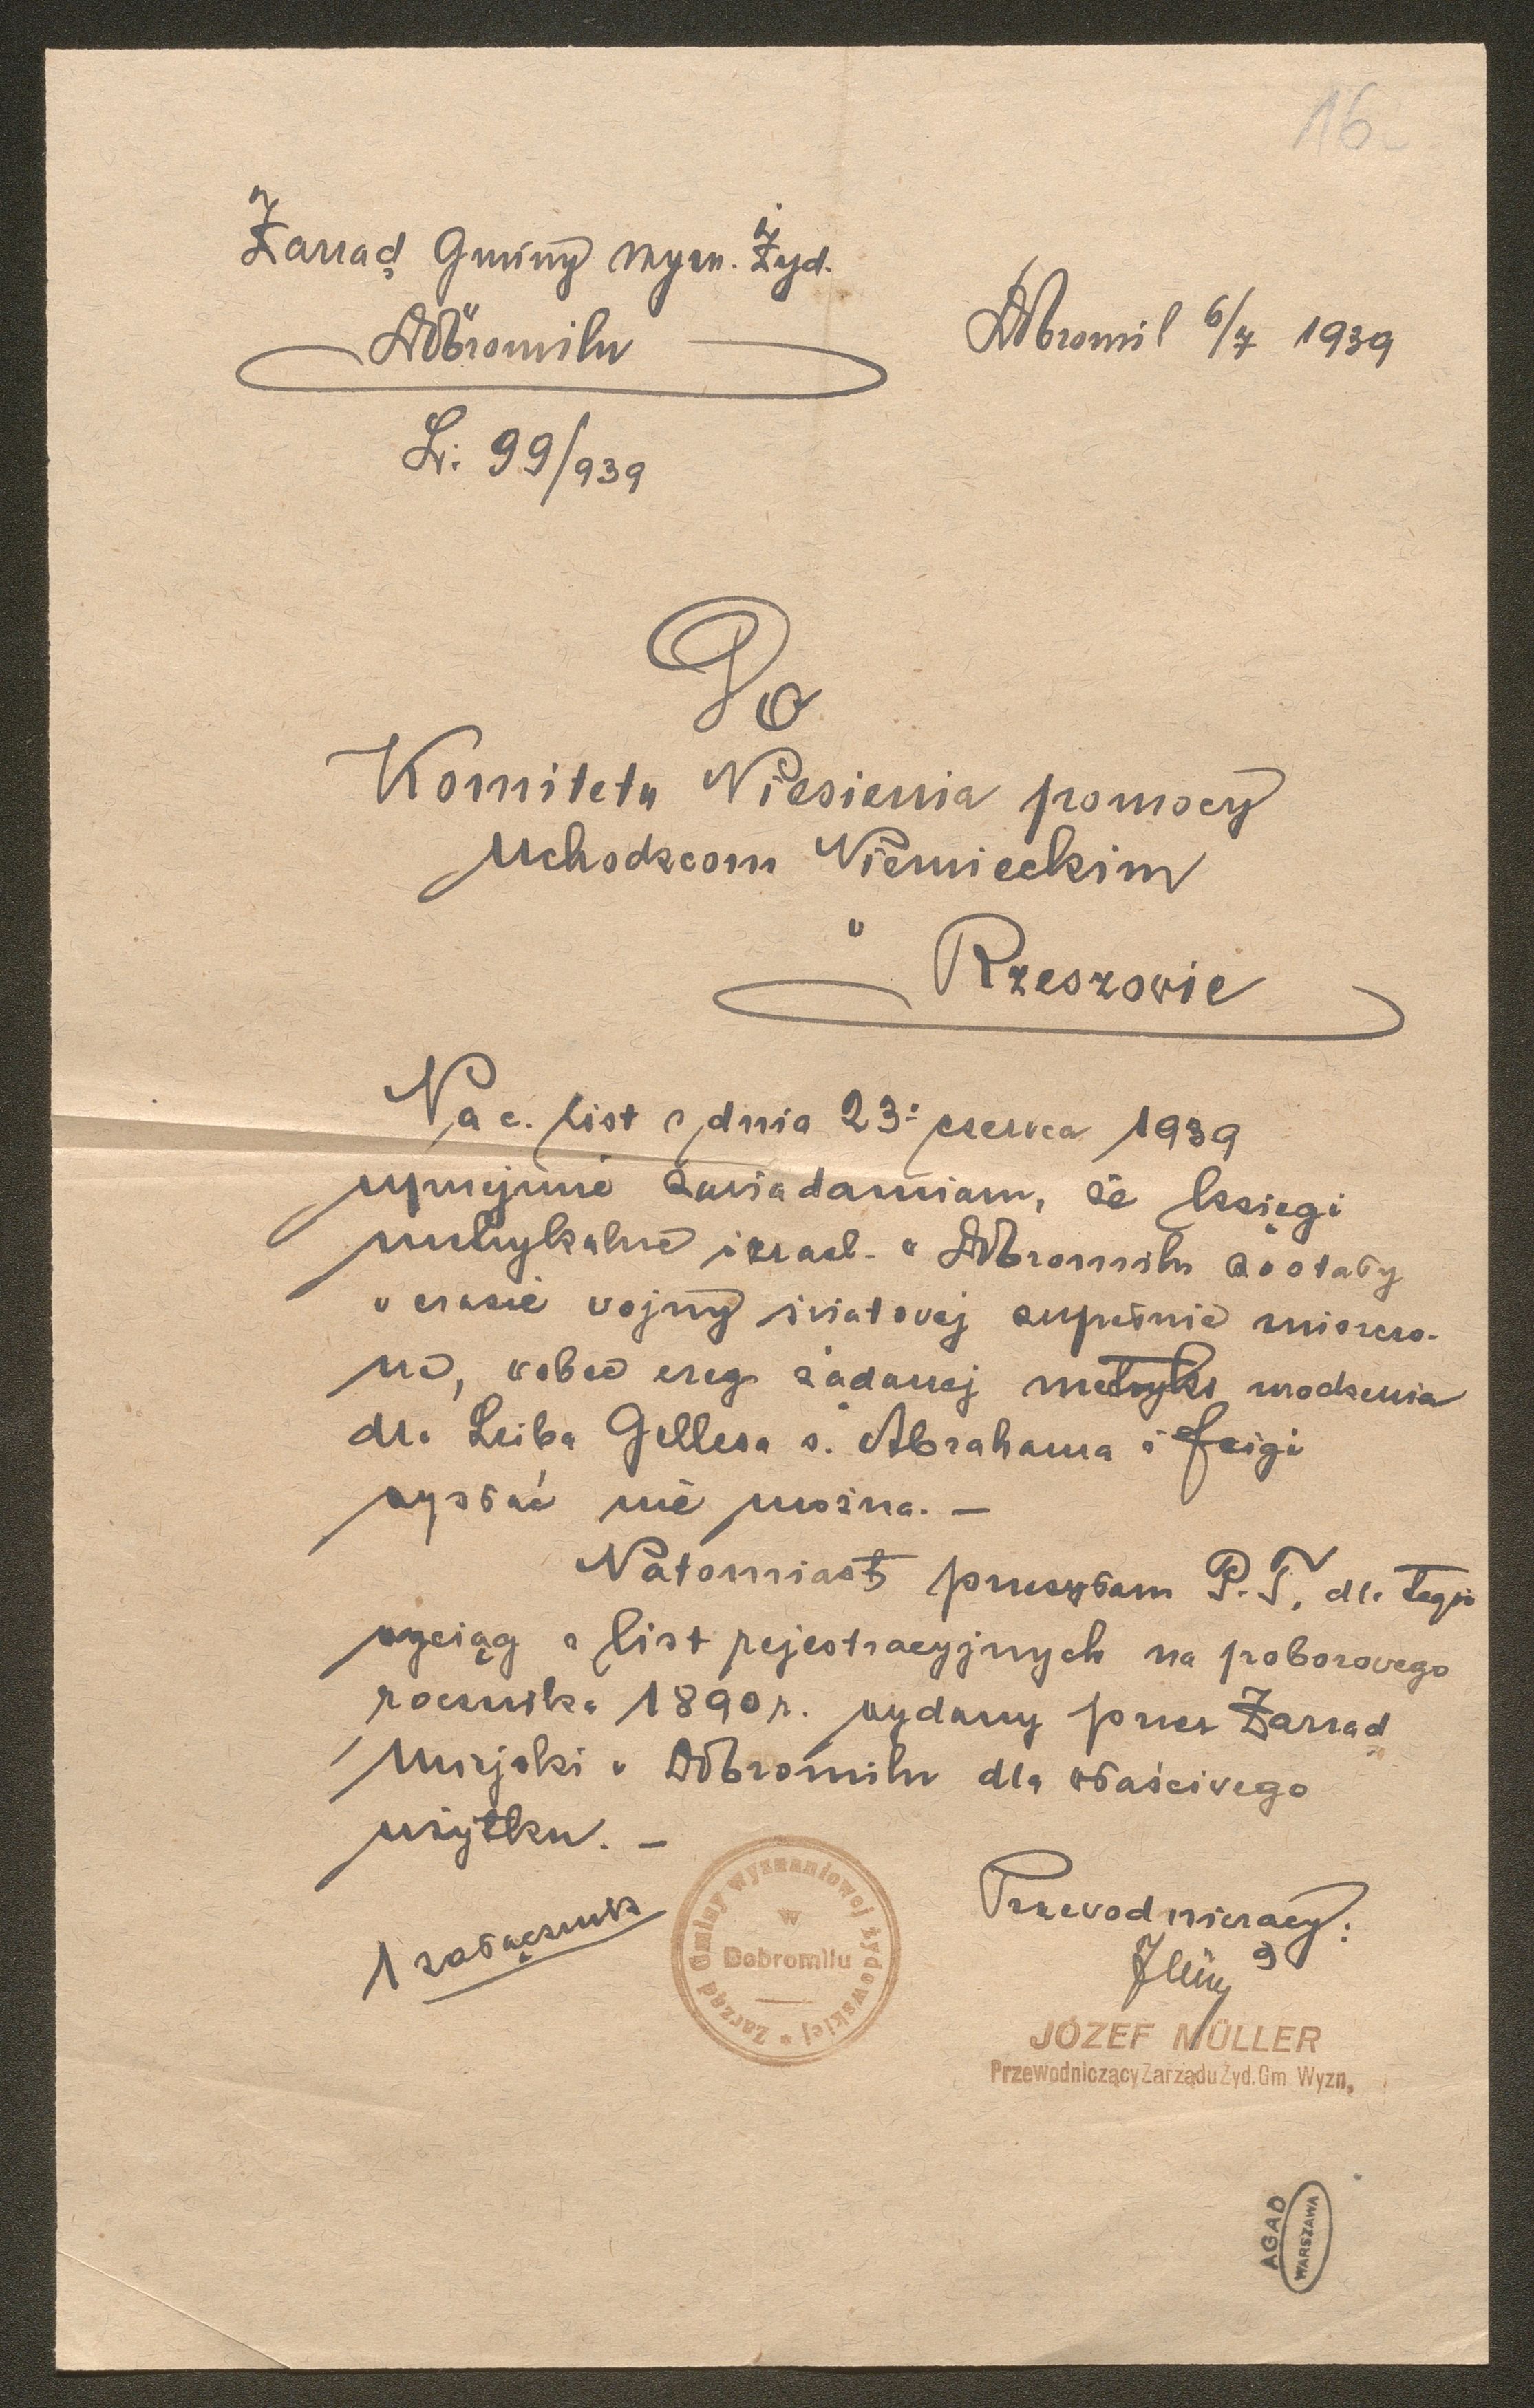 16
Zarząd Gminy Wyzn. Żyd.
w
Dobromilu
Dobromil 6/7 1939
L: 99/939
Do
Komitetu Niesienia pomocy
Uchodzcom Niemieckim
w
Rzeszowie
Na c. list z dnia 23: czerwca 1939
uprzejmie zawiadamiam, że księgi
metrykalne izrael. w Dobromilu zostały
w czasie wojny światowej zupełnie zniszczo-
ne, wobec czego żądanej metryki urodzenia
dla Leiba Gellesa s. Abrahama i Feigi
wysłać nie można. —
Natomiast przesyłam P.T. dla tego
wyciąg z list rejestracyjnych na poborowego
rocznika 1890 r. wydany przez Zarząd
Miejski w Dobromilu dla właściwego
użytku. —
1 załącznik
Zarząd Gminy wyznaniowej żydowskiej
w
Dobromilu
Przewodniczący:
JÓZEF MÜLLER
Przewodniczący Zarządu Żyd. Gm Wyzn,
AGAD
WARSZAWA